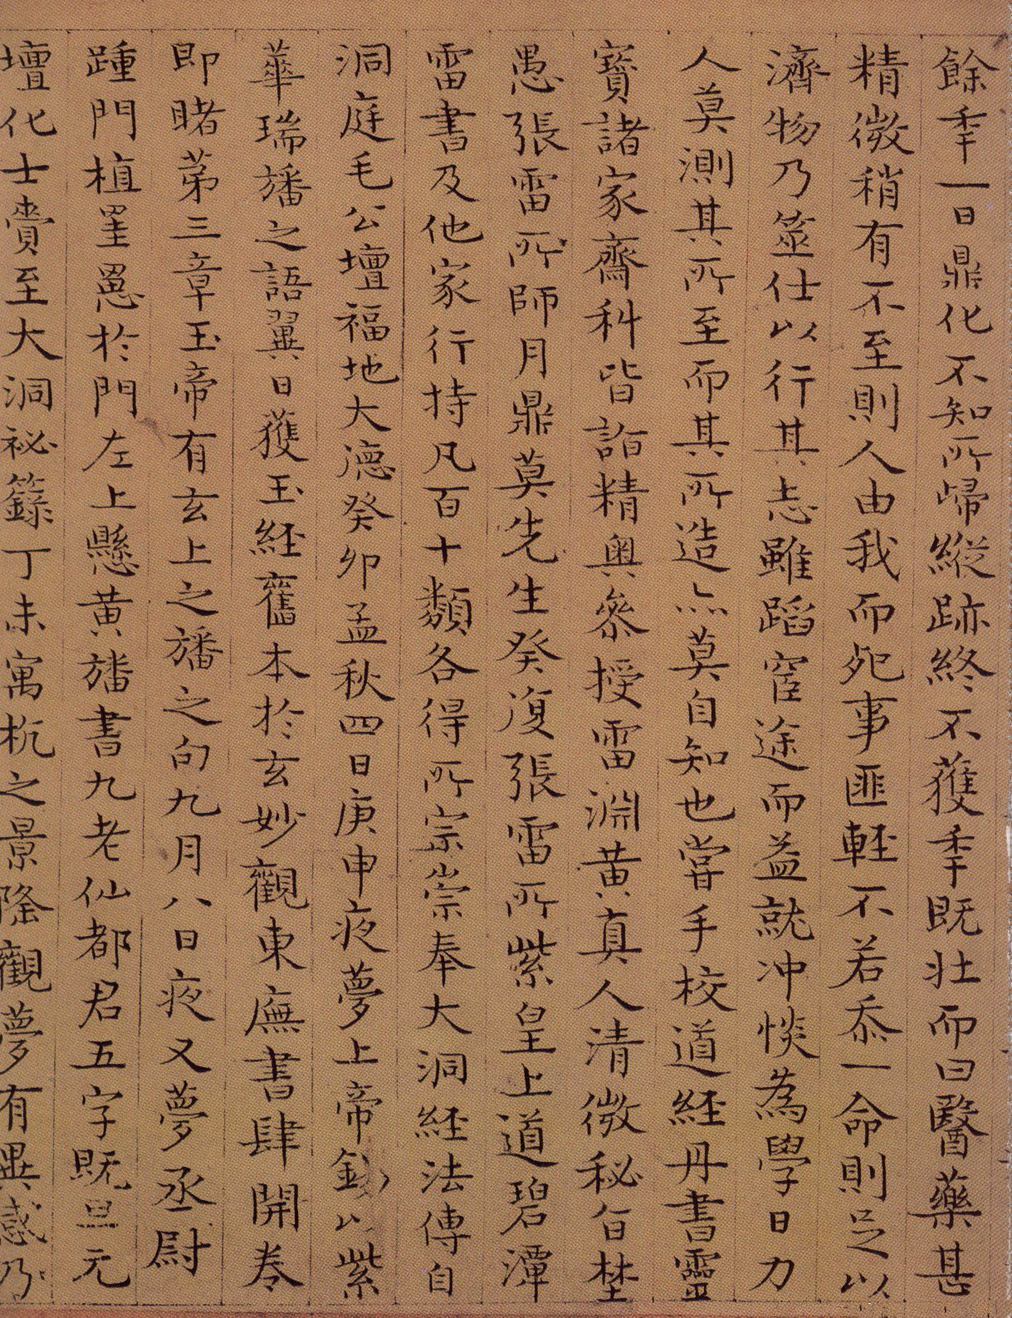 餘秊一日鼎化不知所歸縱跡終不獲秊既壯而曰醫藥甚
精微稍有不至則人由我而死事匪輕不若忝一命則足以
濟物乃筮仕以行其志雖蹈宦途而益就沖惔為學日力
人莫測其所至而其所造亦莫自知也嘗手校道經丹書靈
寶諸家齋科皆詣精奧叅授雷淵黃真人清微秘旨埜
愚張雷所師月鼎莫先生癸復張雷所紫皇上道碧潭
雷書及他家行持凡百十類各得所宗崇奉大洞經法傳自
洞庭毛公壇福地大德癸卯孟秋四日庚申夜夢上帝錫以紫
華瑞旛之語翼日獲玉經舊本於玄妙觀東廡書肆開卷
即睹苐三章玉帝有玄上之旛之句九月八日夜又夢丞尉
踵門植罣罳於門左上懸黃旛書九老仙都君五字既旦元
壇化士賫至大洞祕籙丁未寓杭之景隆觀夢有異感乃